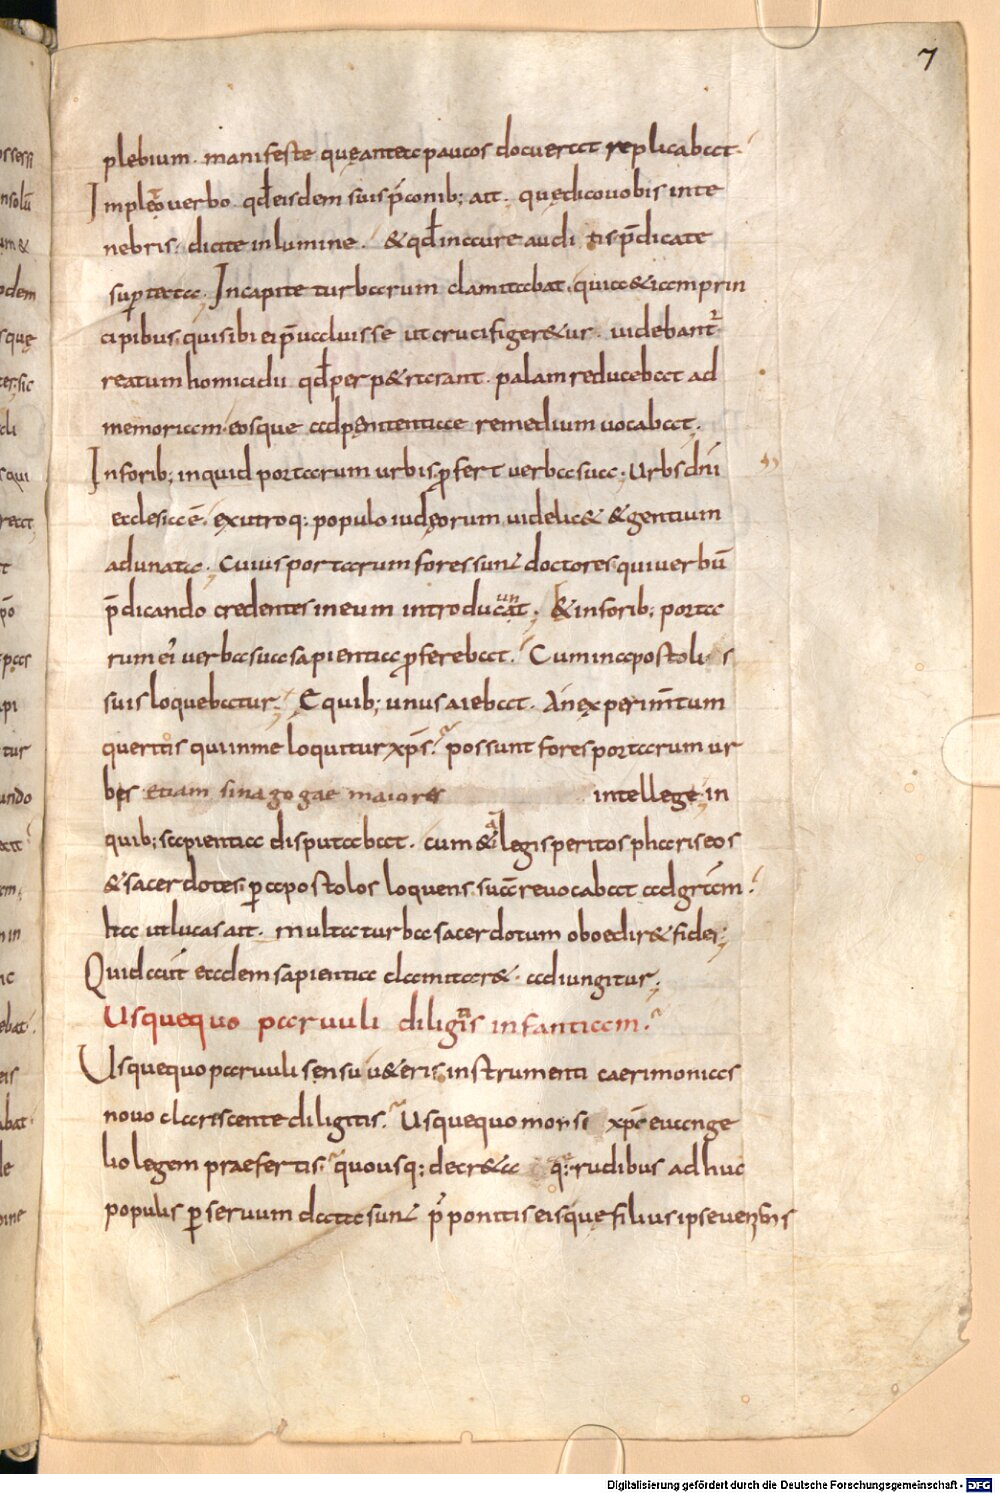 7
plebium. manifeste quęantea paucos docuerat replicabat.
Impleto verbo. qđ eisdem suis p̄conib; ait. quę dico vobis in te
nebris. dicite in lumine. & qđ in aure auditis p̄dicate
sup tecta. In capite turbarum clamitabat. quia & iam prin
cipibus. qui sibi ei p̄valuisse ut crucifiger&ur. videbant̄
reatum homicidii qđ perp&rarant. palam reducebat ad
memoriam. eosque ad pęnitentiae remedium vocabat.
In forib; inquid portarum urbis ꝓfert verba sua; Urbs dn̄i
ecclesia ē. ex utroq; populo iudęorum videlic& & gentium
adunata. Cuius portarum fores sunt doctores. qui verbū
p̄dicando credentes in eum introducunt; & in forib; porta
rum ei verba sua sapientia ꝓferebat. Cum in apostolis
suis loquebatur. E quib; unus aiebat. An experim̄tum
queritis qui in me loquitur xp̄s. possunt fores portarum ur
bis etiam sinagogae maiores intellege in
quib; sapientia disputabat. cum & legis peritos phariseos
& sacerdotes. ꝑ apostolos loquens suā revocabat ad gr̄am.
Ita ut lucas ait. multa turba sacerdotum oboedir& fidei;
Quid aut̄ eadem sapientia clamitar&. adiungitur;
Usquequo parvuli diligitis infantiam.
Usquequo parvuli sensu v&eris instrumenti caerimonias
novo clarescente diligitis. Usquequo morsi xp̄e euange
lio legem praefertis. quousq; decr&a q; rudibus adhuc
populis ꝑ servum data sunt p̄ponitis eis quę filius ipse